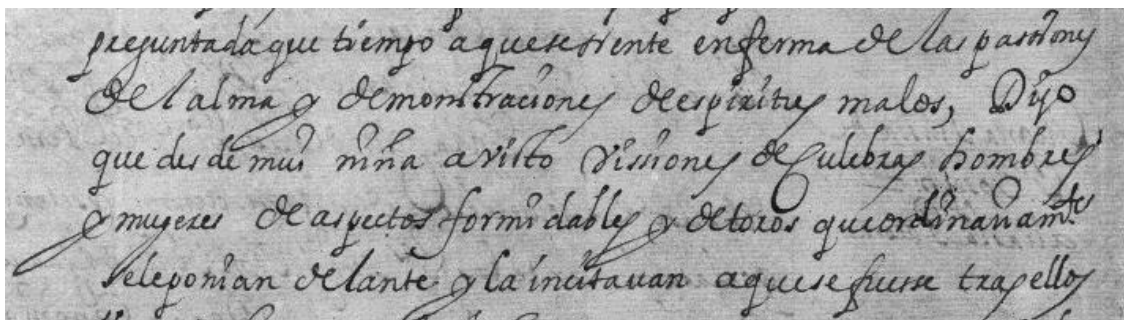 preguntada que tiempo a que se siente enferma de las pasiones
del alma y demonstraciones de espiritus malos, Dijo
que desde mui niña a visto vissiones de Culebras hombres
y mugeres de aspectos formidables y de toros que ordinariamte
se le ponian delante y la incitavan a que se fuesse tras ellos